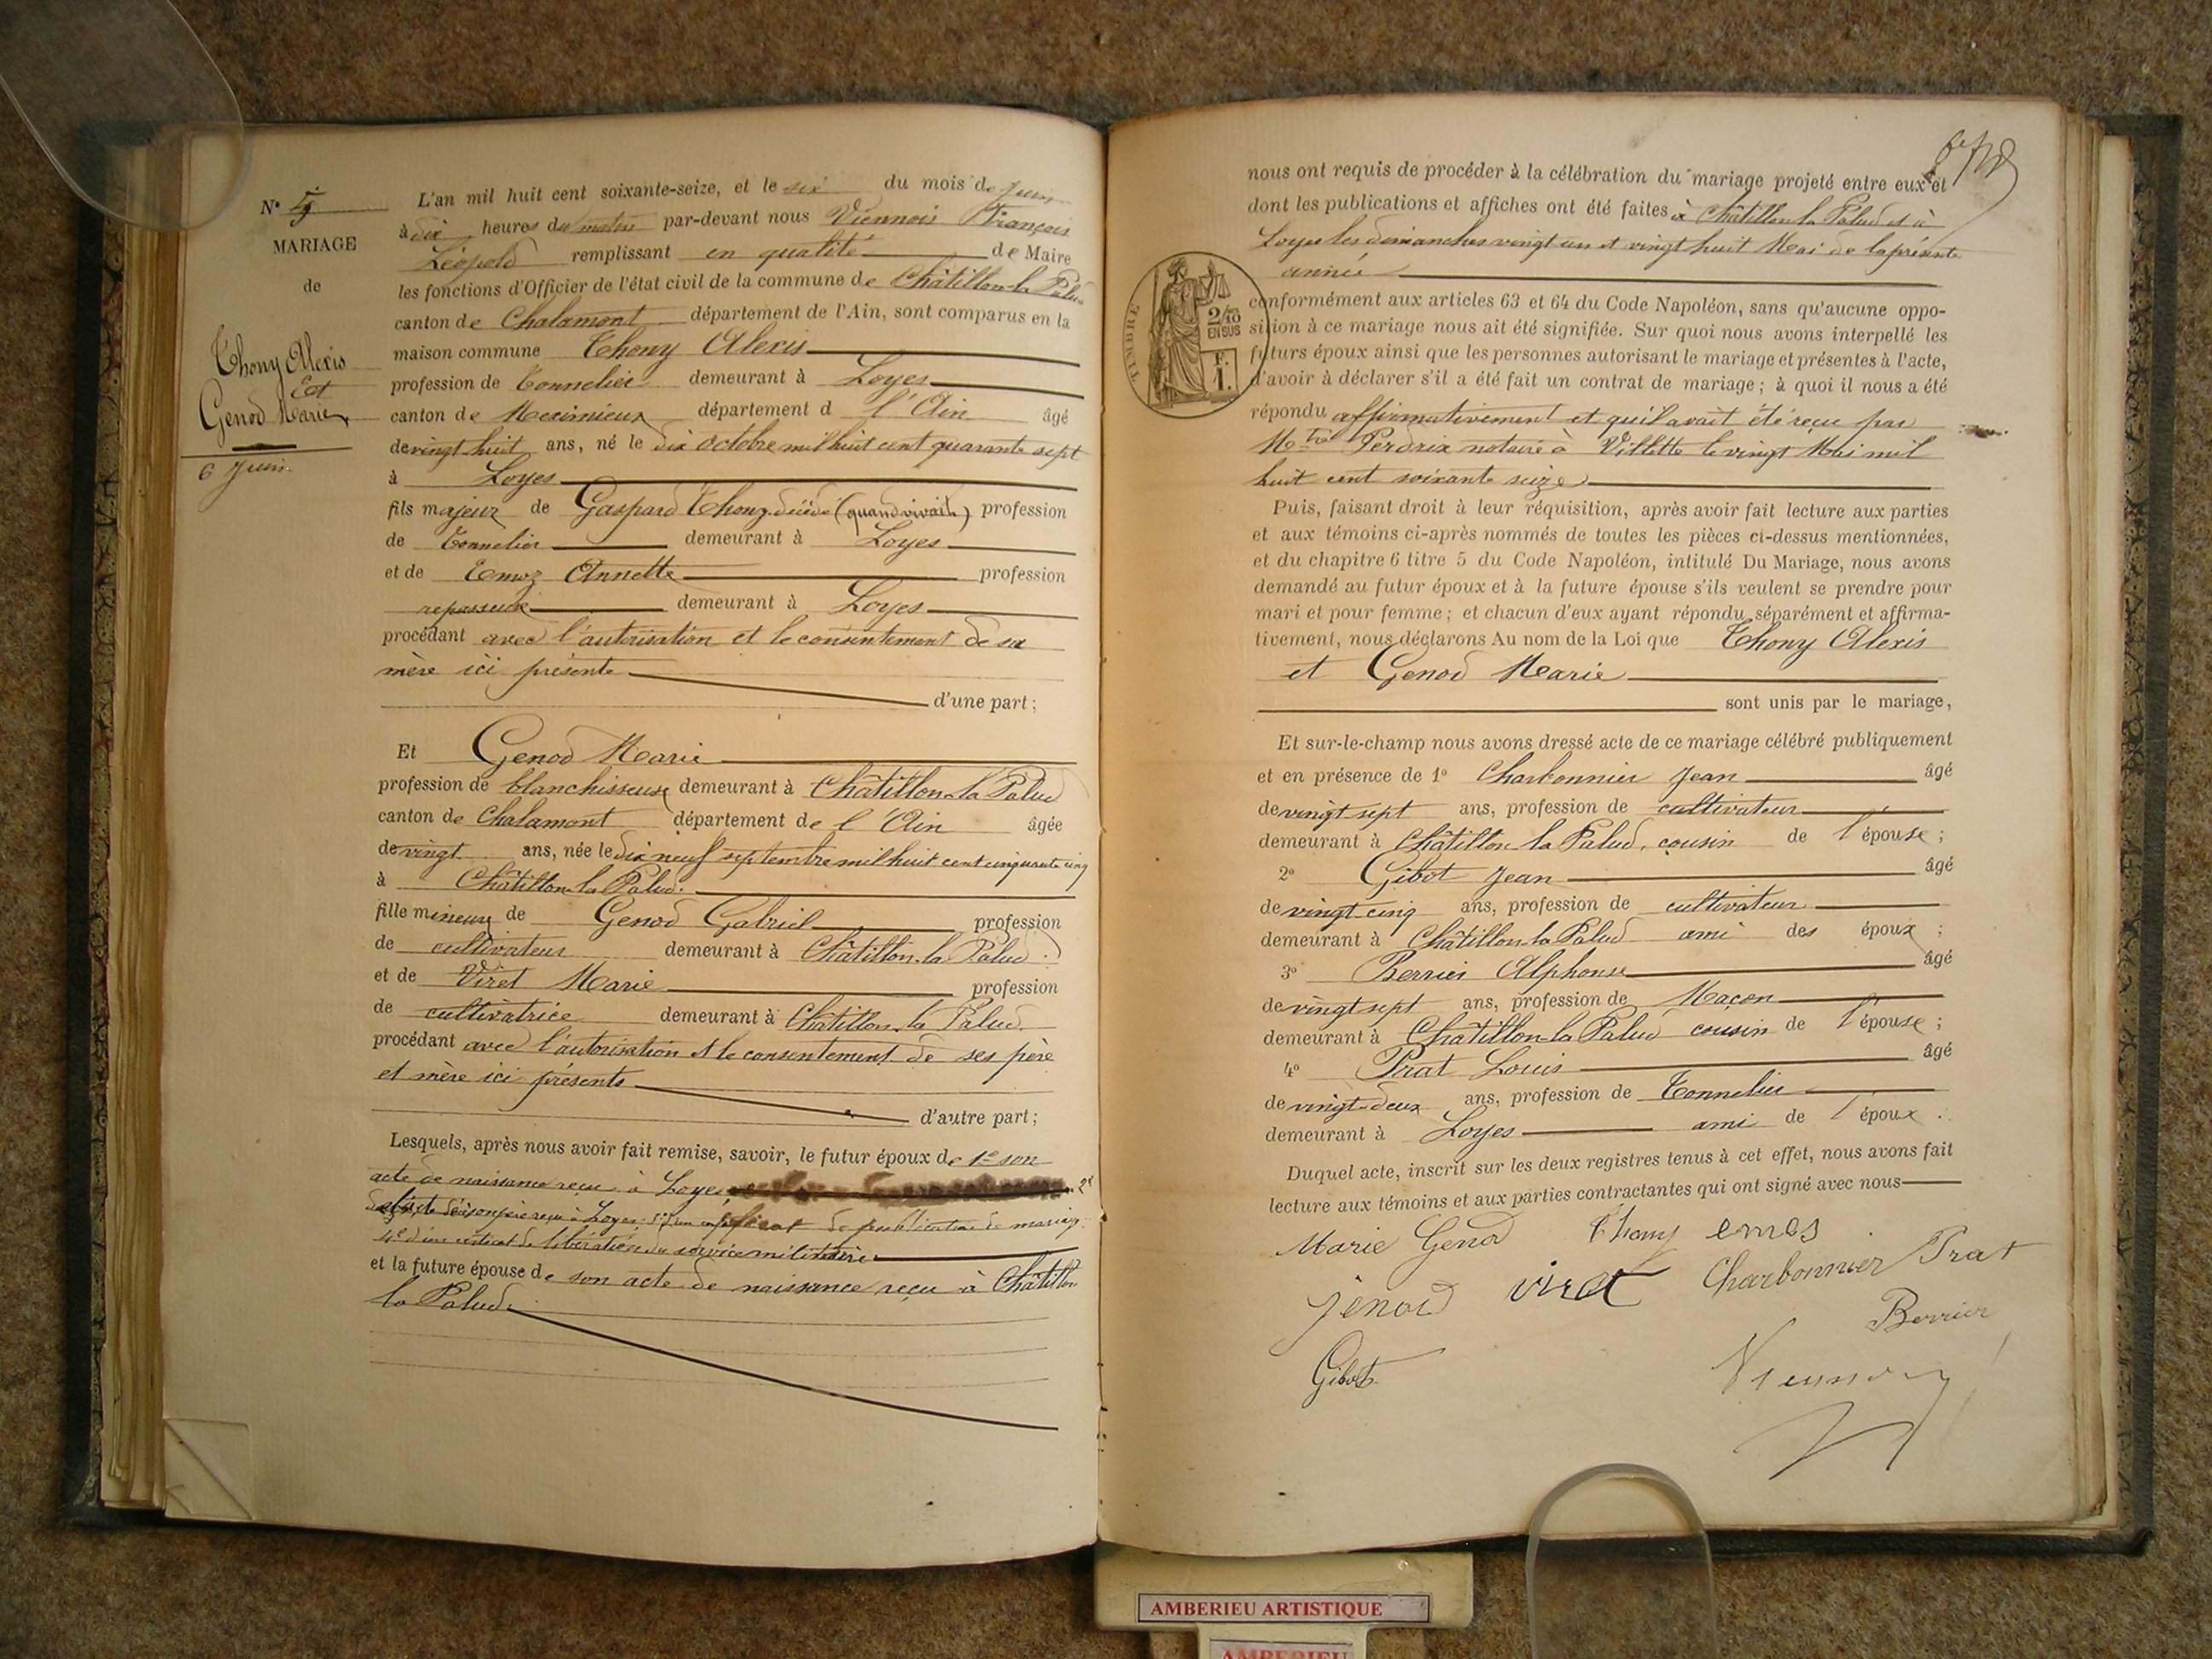 N° 5
MARIAGE
de
Thony Alexis
Et
Genod Marie
6 Juin
L'an mil huit cent soixante-seize, et le six du mois de Juin
à dix heures du matin par-devant nous Viennois François
Léopold remplissant en qualité de Maire
les fonctions d'Officier de l'état civil de la commune de Châtillon-la Palud
canton de Chalamont département de l'Ain, sont comparus en la
maison commune Thony Alexis
profession de Tonnelier demeurant à Loyes
canton de Meximieux département d l'Ain âgé
de vingt huit ans, né le dix Octobre mil huit cent quarante sept
à Loyes
fils majeur de Gaspard Thony décédé (quand vivait) profession
de Tonnelier demeurant à Loyes
et de Emoz Annette profession
repasseuse demeurant à Loyes
procédant avec l'autorisation et le consentement de sa
mère ici présente
d'une part;
Et Genod Marie
profession de blanchisseuse demeurant à Châtillon-la Palud
canton de Chalamont département de l'Ain âgée
de vingt ans, née le dix neuf septembre mil huit cent cinquante cinq
à Châtillon-la Palud.
fille mineure de Genod Gabriel profession
de cultivateur demeurant à Châtillon-la Palud.
et de Viret Marie profession
de cultivatrice demeurant à Châtillon-la Palud.
procédant avec l'autorisation et le consentement de ses père
et mère ici présents
d'autre part;
Lesquels, après nous avoir fait remise, savoir, le futur époux de 1° son
acte de naissance reçu à Loyes, 2°
de son père reçu à Loyes; 3° d'un certificat de publication de mariage
4° d'un certificat de libération du service militaire
et la future épouse de son acte de naissance reçu à Châtillon
la Palud.
nous ont requis de procéder à la célébration du mariage projeté entre eux et
dont les publications et affiches ont été faites à Châtillon-la Palud et à
Loyes les dimanches vingt un et vingt huit Mai de la présente
année
TIMBRE
2/10
EN SUS
F.
1.
conformément aux articles 63 et 64 du Code Napoléon, sans qu'aucune oppo-
sition à ce mariage nous ait été signifiée. Sur quoi nous avons interpellé les
futurs époux ainsi que les personnes autorisant le mariage et présentes à l'acte,
d'avoir à déclarer s'il a été fait un contrat de mariage; à quoi il nous a été
répondu affirmativement et qu'il avait été reçu par
Mtre Perdrix notaire à Villette le vingt Mai mil
huit cent soixante seize
Puis, faisant droit à leur réquisition, après avoir fait lecture aux parties
et aux témoins ci-après nommés de toutes les pièces ci-dessus mentionnées,
et du chapitre 6 titre 5 du Code Napoléon, intitulé Du Mariage, nous avons
demandé au futur époux et à la future épouse s'ils veulent se prendre pour
mari et pour femme; et chacun d'eux ayant répondu séparément et affirma-
tivement, nous déclarons Au nom de la Loi que Thony Alexis
et Genod Marie
sont unis par le mariage,
Et sur-le-champ nous avons dressé acte de ce mariage célébré publiquement
et en présence de 1° Charbonnier Jean âgé
de vingt sept ans, profession de cultivateur
demeurant à Châtillon-la Palud, cousin de l'épouse;
2° Gibot Jean âgé
de vingt cinq ans, profession de cultivateur
demeurant à Châtillon-la Palud ami des époux;
3° Berrier Alphonse âgé
de vingt sept ans, profession de Maçon
demeurant à Châtillon-la Palud cousin de l'épouse;
4° Prat Louis âgé
de vingt-deux ans, profession de Tonnelier
demeurant à Loyes ami de l'époux.
Duquel acte, inscrit sur les deux registres tenus à cet effet, nous avons fait
lecture aux témoins et aux parties contractantes qui ont signé avec nous
Marie Genod Thony emos
jenod viret Charbonnier Prat
Berrier
Gibot Viennois
AMBERIEU ARTISTIQUE
AMBERIEU